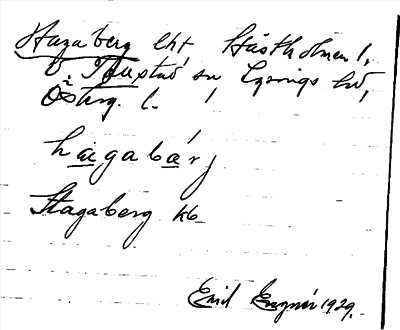 Hagaberg lht Hästholmen 1,
V. Tollstad sn Lysings hd,
Österg. l.
hagabärj
Hagaberg kb
Emil Engnér 1929.